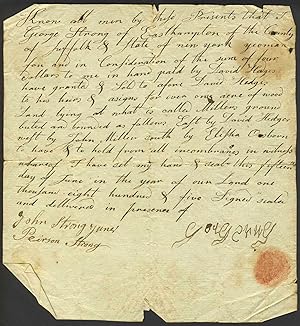 Know all men by these Presents that I
George Strong of Easthampton of the County
of Suffolk & State of new york yeoman
for and in Consideration of the sum of four
Dollars to me in hand paid by David Hedges
have granted & Sold to afore David Hedges
to his heirs & asigns for ever one acre of wood
Land lying at what is called Millers ground
buted and bounded as follows East by David Hedges
west by John Miller South by Elisha Osborn
to have & to hold from all incumbrances in witness
whareof I have set my hand & seal this fifteenth
day of June in the year of our Lord one
thousand eight hundred & five Signed sealed
and delivered in presence of
John Strong junr
Pierson Strong